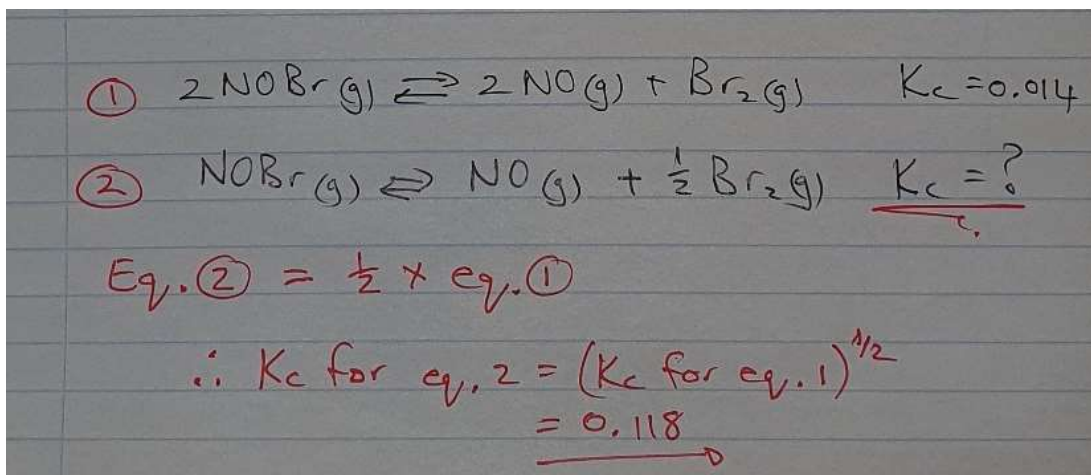 ① 2NOBr(g) ⇌ 2NO(g) + Br₂(g) Kc = 0.014
② NOBr(g) ⇌ NO(g) + ½ Br₂(g) Kc = ?
Eq. ② = ½ × eq. ①
∴ Kc for eq. 2 = (Kc for eq. 1)^1/2
= 0.118